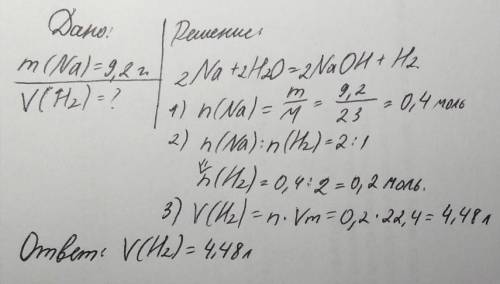 Дано:
m(Na)=9,2 г.
V(H₂)=?
Решение:
2Na+2H₂O=2NaOH+H₂
1) n(Na)= m/M = 9,2/23 = 0,4 моль
2) n(Na):n(H₂)=2:1
n(H₂)=0,4:2=0,2 моль.
3) V(H₂)=n·Vm=0,2·22,4=4,48л
Ответ: V(H₂)=4,48л